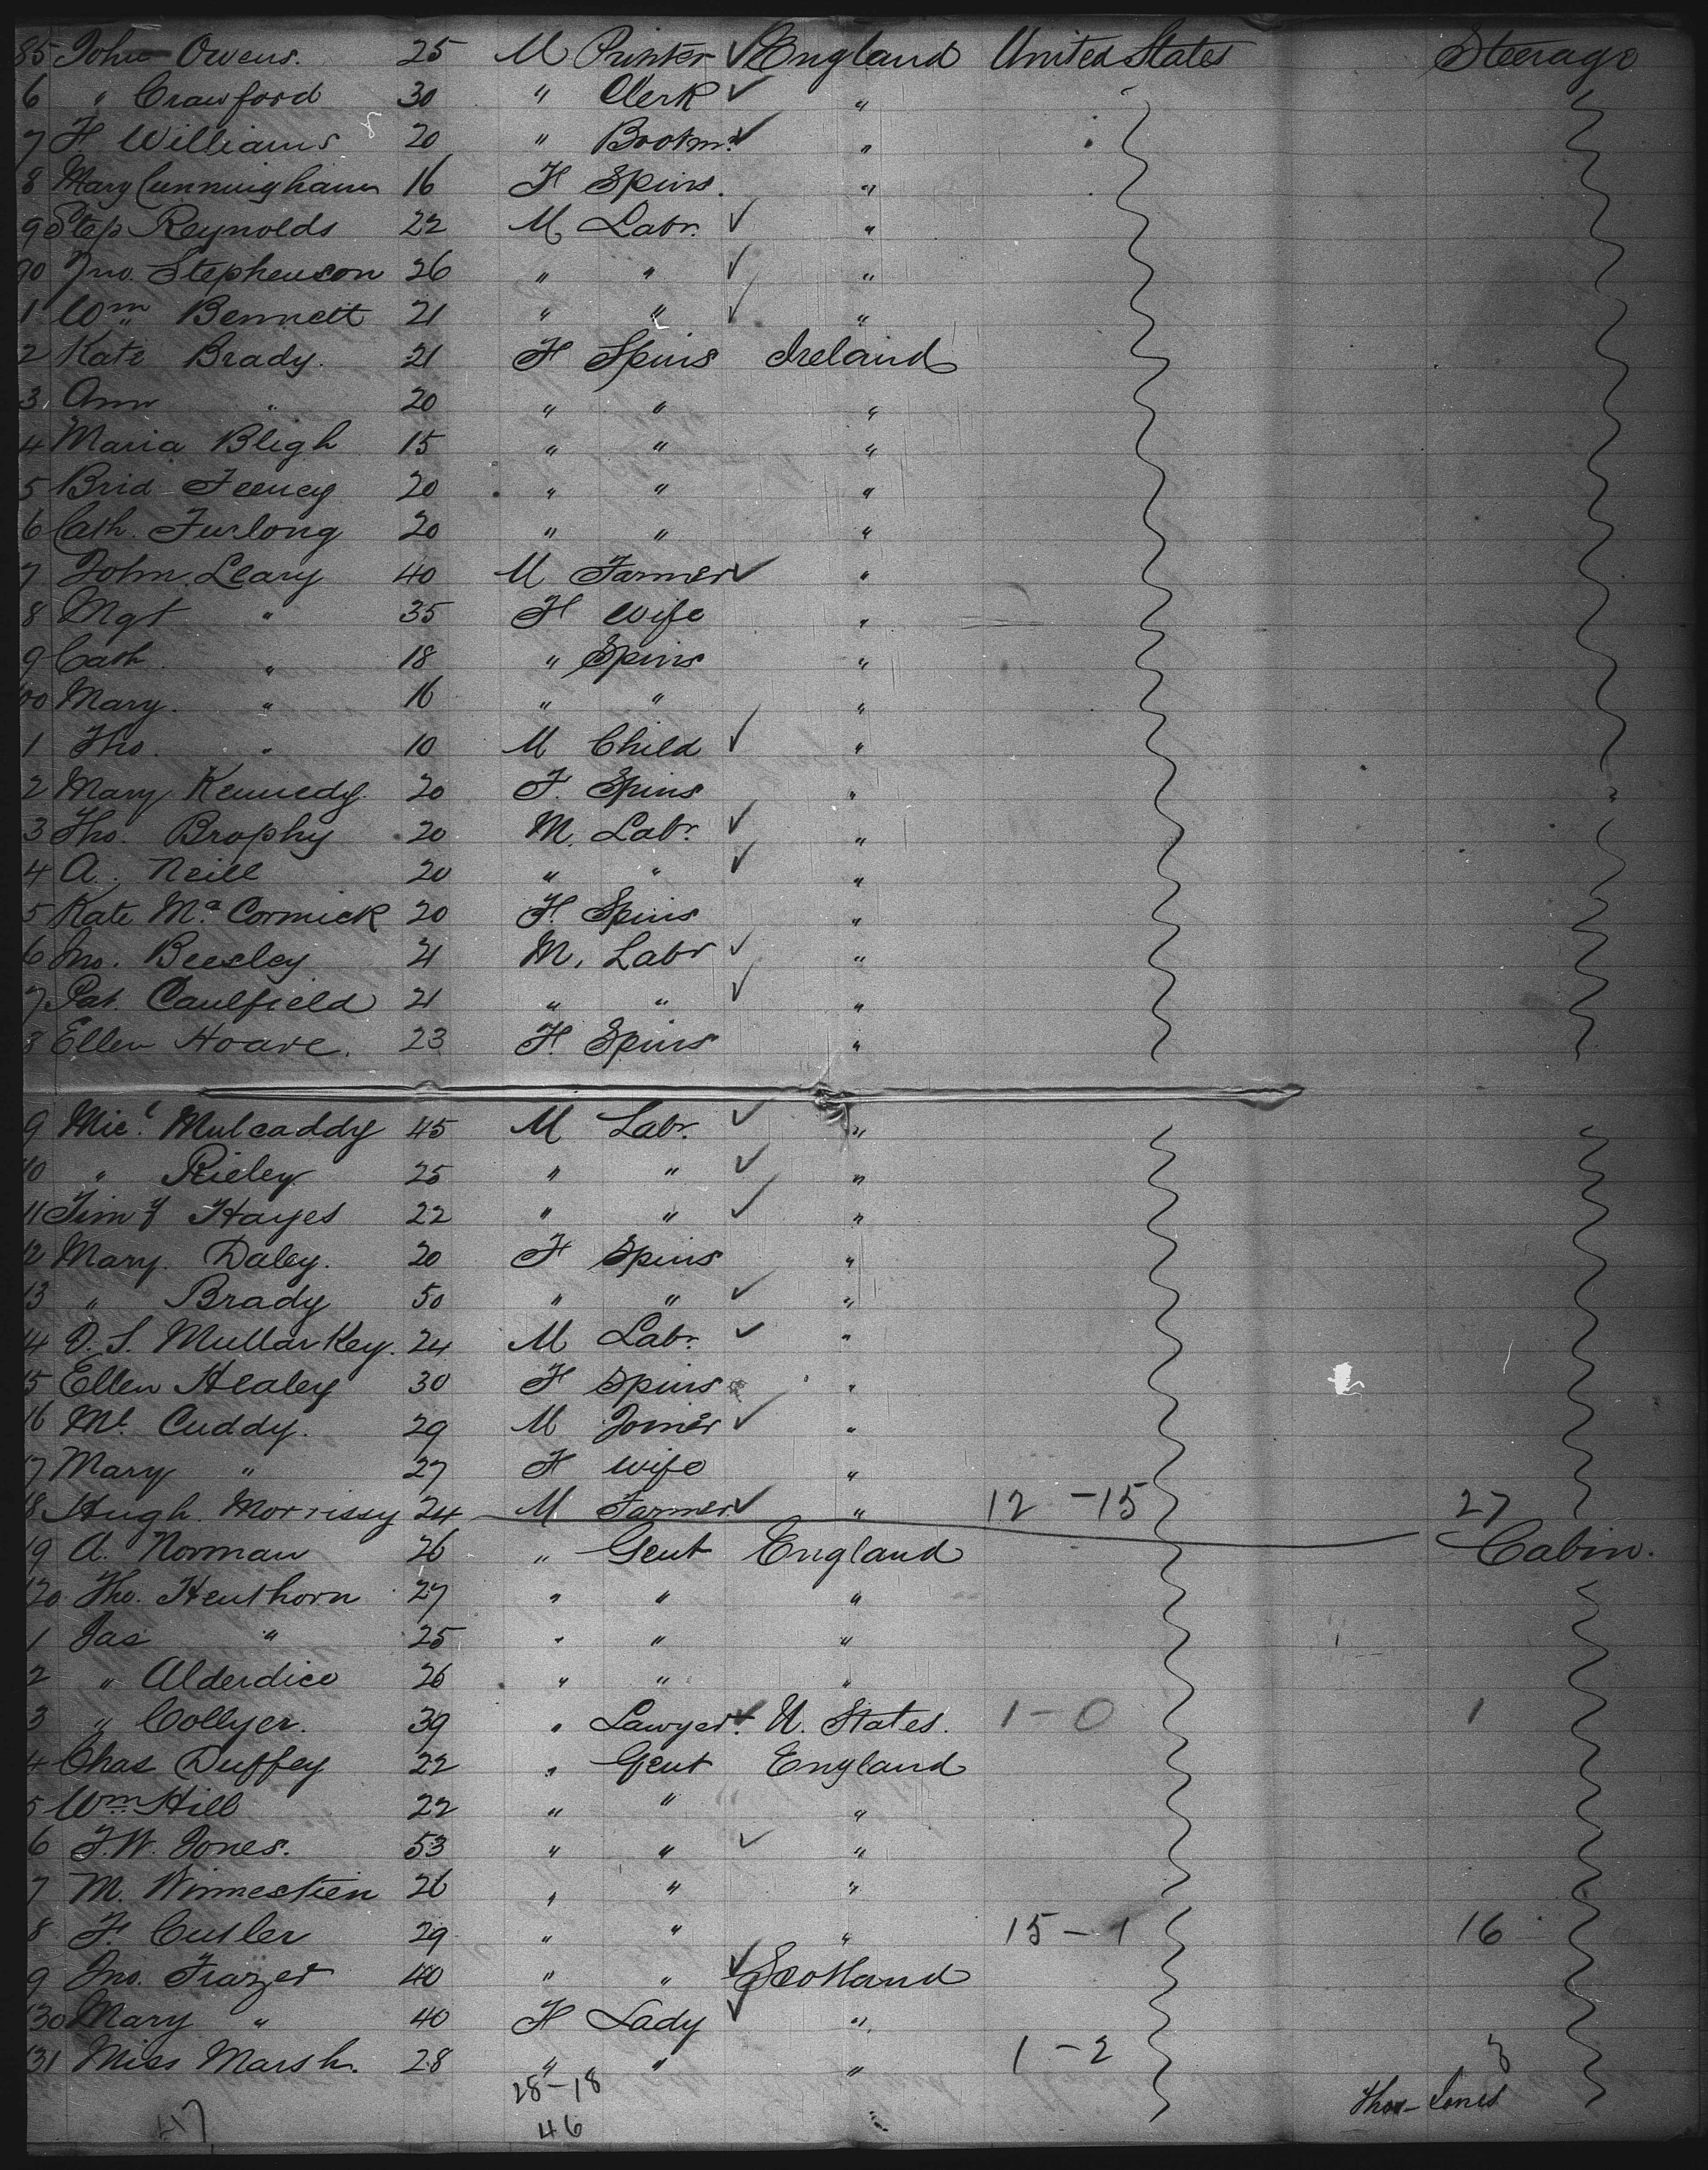 85 John Owens. 25 M Printer ✓ England United States Steerage
6 " Crawford 30 " Clerk ✓ "
7 H Williams 20 " Bootm. ✓ "
8 Mary Cunningham 16 F Spins. "
9 Step Reynolds 22 M Labr. ✓ "
90 Jno. Stephenson 26 " " ✓ "
1 Wm Bennett 21 " " ✓ "
2 Kate Brady. 21 F Spins Ireland
3 Ann " 20 " " "
4 Maria Bligh 15 " " "
5 Brid Feeney 20 " " "
6 Cath. Furlong 20 " " "
7 John Leary 40 M Farmer ✓ "
8 Mgt " 35 F Wife "
9 Cath. " 18 " Spins "
100 Mary. " 16 " " "
1 Tho. " 10 M Child ✓ "
2 Mary Kennedy. 20 F. Spins "
3 Tho. Brophy 20 M. Labr. ✓ "
4 A. Neill 20 " " ✓ "
5 Kate Mc Cormick 20 F. Spins "
6 Jno. Beesley 21 M. Labr ✓ "
7 Pat. Caulfield 21 " " ✓ "
8 Ellen Hoare. 23 F. Spins "
9 Micl. Mulcaddy 45 M Labr. ✓ "
10 " Rieley 25 " " ✓ "
11 Timy Hayes 22 " " ✓ "
12 Mary. Daley. 20 F Spins "
13 " Brady 50 " " ✓ "
14 D. S. Mullarkey. 24 M Labr. ✓ "
15 Ellen Healey 30 F Spins "
16 Ml. Cuddy. 29 M Joiner ✓ "
17 Mary " 27 F Wife "
18 Hugh. Morrissy 24 M Farmer ✓ " 12 - 15 27
19 A. Norman 26 " Gent England Cabin.
120 Tho. Henthorn 27 " " "
1 Jas " 25 " " "
2 " Alderdice 26 " " "
3 " Collyer. 39 " Lawyer. ✓ U. States. 1 - 0 1
4 Chas Duffey 22 " Gent England
5 Wm. Hill 22 " " "
6 T.W. Jones. 53 " " ✓ "
7 M. Winnestien 26 " " "
8 F. Cutler 29 " " " 15 - 1 16
9 Jno. Frazer 40 " " ✓ Scotland
130 Mary " 40 F Lady ✓ "
131 Miss Marsh. 28 " " " 1 - 2 3
28 - 18
Thos Jones
47 46